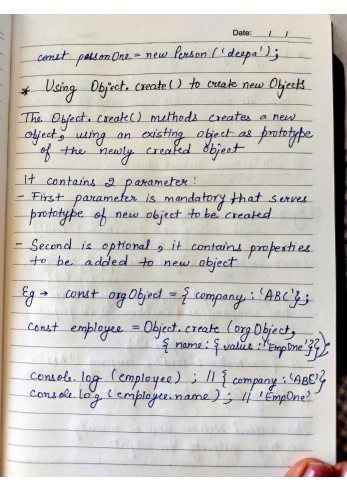 Date: / /
const personOne = new Person ('deepa');
* Using Object.create() to create new Objects
The Object.create() methods creates a new
object, using an existing object as prototype
of the newly created object
It contains 2 parameter:
- First parameter is mandatory that serves
prototype of new object to be created
- Second is optional, it contains properties
to be added to new object
Eg → const orgObject = { company : 'ABC' };
const employee = Object.create (orgObject,
{ name : { value : 'EmpOne' }});
console.log (employee) ; // { company : 'ABC' }
console.log (employee.name) ; // 'EmpOne'